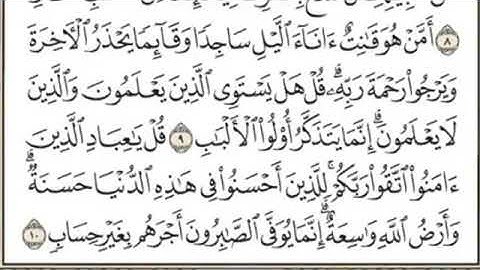 ٨ أَمَّنْ هُوَ قَٰنِتٌ ءَانَآءَ ٱلَّيْلِ سَاجِدًا وَقَآئِمًا يَحْذَرُ ٱلْأَخِرَةَ
وَيَرْجُوا۟ رَحْمَةَ رَبِّهِۦ ۗ قُلْ هَلْ يَسْتَوِى ٱلَّذِينَ يَعْلَمُونَ وَٱلَّذِينَ
لَا يَعْلَمُونَ ۗ إِنَّمَا يَتَذَكَّرُ أُو۟لُوا۟ ٱلْأَلْبَٰبِ ٩ قُلْ يَٰعِبَادِ ٱلَّذِينَ
ءَامَنُوا۟ ٱتَّقُوا۟ رَبَّكُمْ ۚ لِلَّذِينَ أَحْسَنُوا۟ فِى هَٰذِهِ ٱلدُّنْيَا حَسَنَةٌ ۗ
وَأَرْضُ ٱللَّهِ وَٰسِعَةٌ ۗ إِنَّمَا يُوَفَّى ٱلصَّٰبِرُونَ أَجْرَهُم بِغَيْرِ حِسَابٍ ١٠